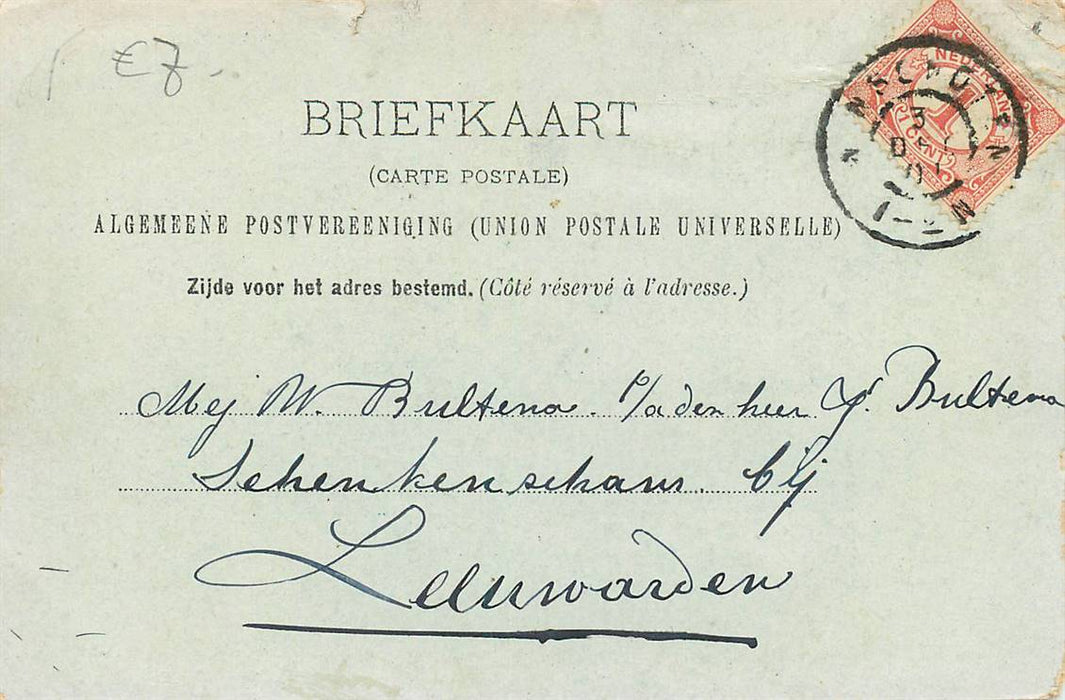 € 7.
BRIEFKAART
(CARTE POSTALE)
ALGEMEENE POSTVEREENIGING (UNION POSTALE UNIVERSELLE)
Zijde voor het adres bestemd. (Côté réservé à l'adresse.)
NEDERLAND
1
1 CENT
Mej W. Bultena. p/a den heer P. Bultena
Schenkenschans. bij
Leeuwarden